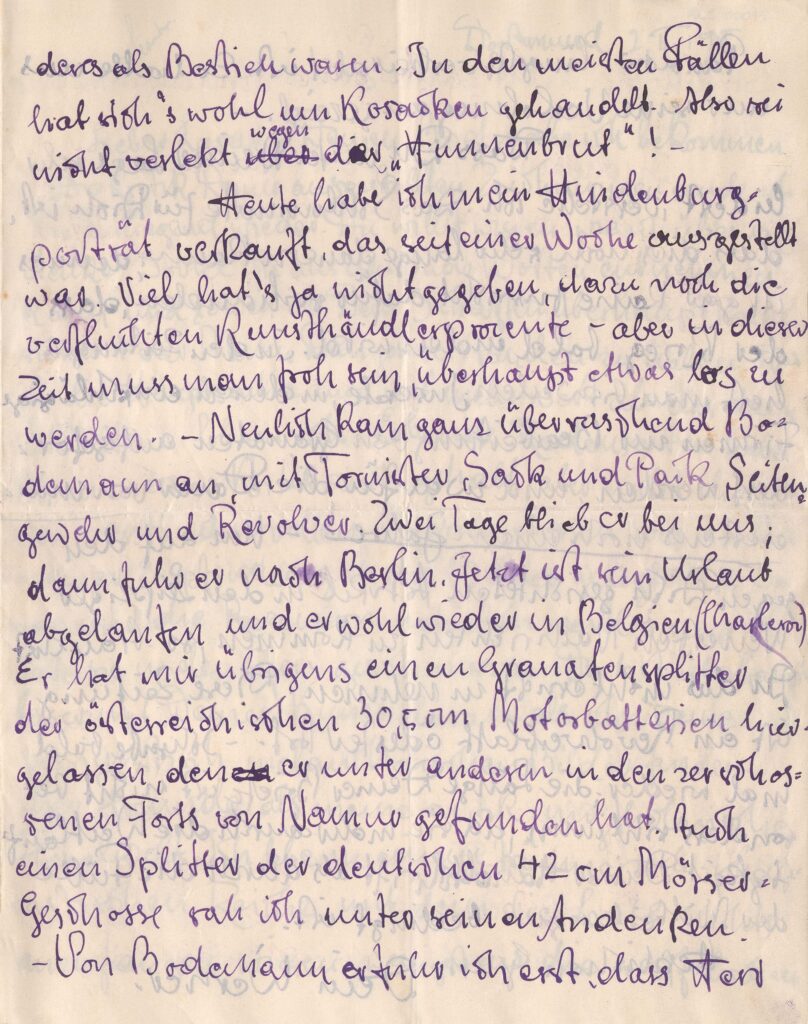 deres als Bestien waren. In den meisten Fällen
hat sich's wohl um Kosacken gehandelt. Also sei
nicht verletzt wegen der „Hunnenbrut"! –
Heute habe ich mein Hindenburg-
porträt verkauft, das seit einer Woche ausgestellt
war. Viel hat's ja nicht gegeben, dazu noch die
verfluchten Kunsthändlerprozente – aber in dieser
Zeit muss man froh sein, überhaupt etwas los zu
werden. – Neulich kam ganz überraschend Bo-
demann an, mit Tornister, Sack und Pack, Seiten-
gewehr und Revolver. Zwei Tage blieb er bei uns,
dann fuhr er nach Berlin. Jetzt ist sein Urlaub
abgelaufen und er wohl wieder in Belgien (Charleroi)
Er hat mir übrigens einen Granatensplitter
der österreichischen 30,5 cm Motorbatterien hier-
gelassen, den er unter anderen in den zerschos-
senen Forts von Namur gefunden hat. Auch
einen Splitter der deutschen 42 cm Mörser-
Geschosse sah ich unter seinen Andenken.
– Von Bodemann erfuhr ich erst, dass Herr